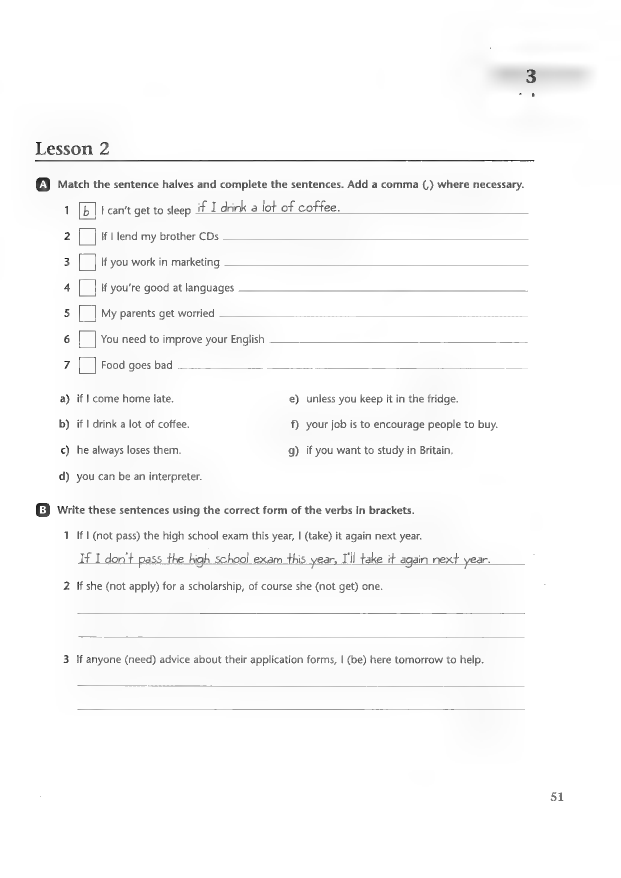 3
Lesson 2
A Match the sentence halves and complete the sentences. Add a comma (,) where necessary.
1 b I can't get to sleep if I drink a lot of coffee.
2 If I lend my brother CDs
3 If you work in marketing
4 If you're good at languages
5 My parents get worried
6 You need to improve your English
7 Food goes bad
a) if I come home late. e) unless you keep it in the fridge.
b) if I drink a lot of coffee. f) your job is to encourage people to buy.
c) he always loses them. g) if you want to study in Britain.
d) you can be an interpreter.
B Write these sentences using the correct form of the verbs in brackets.
1 If I (not pass) the high school exam this year, I (take) it again next year.
If I don't pass the high school exam this year, I'll take it again next year.
2 If she (not apply) for a scholarship, of course she (not get) one.
3 If anyone (need) advice about their application forms, I (be) here tomorrow to help.
51